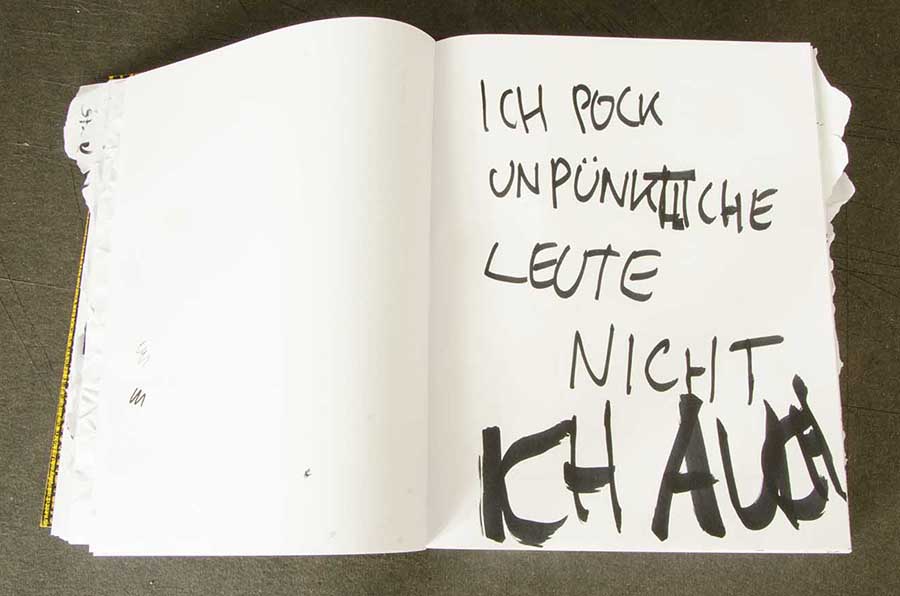 St.
ICH POCK
UNPÜNKTLICHE
LEUTE
NICHT
ICH AUCH